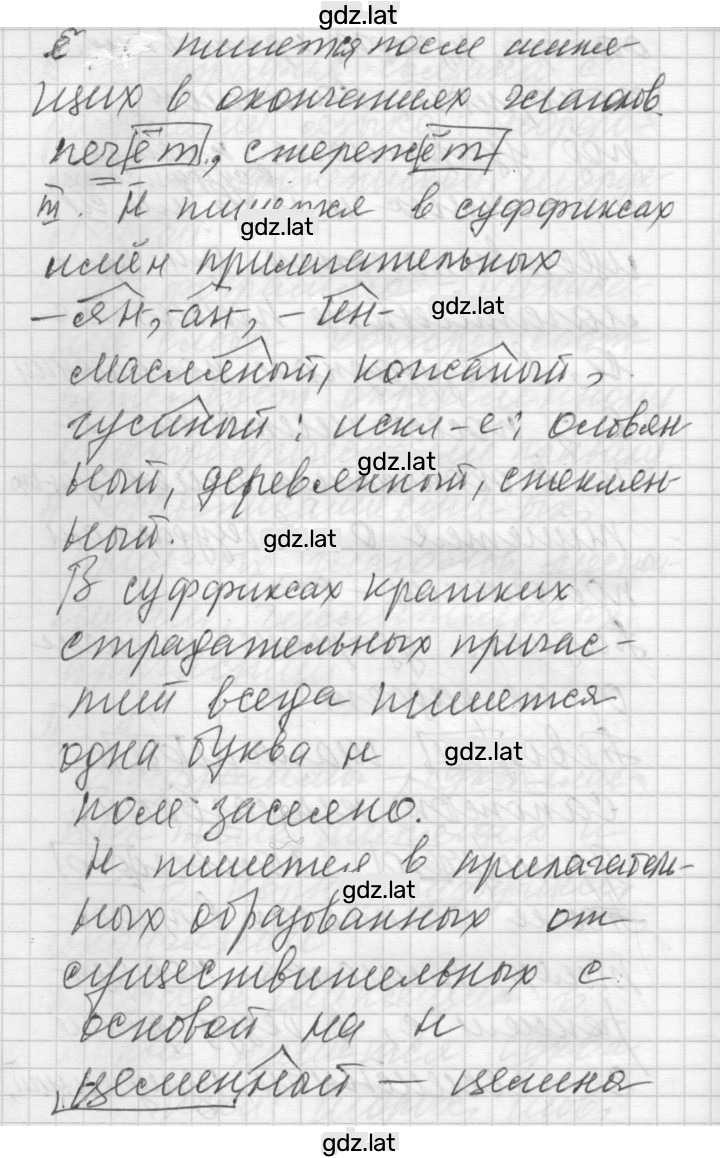 gdz.lat
ё пишется после шипя-
щих в окончаниях глаголов.
печёт, стережёт
III. Н пишется в суффиксах
gdz.lat
имён прилагательных
-ян-, -ан-, -ин-
gdz.lat
масляный, кожаный,
гусиный; искл-е: оловян-
gdz.lat
ный, деревянный, стеклян-
ный.
gdz.lat
В суффиксах кратких
страдательных причас-
тий всегда пишется
одна буква н
gdz.lat
поле заселено.
Н пишется в прилагатель-
gdz.lat
ных образованных от
существительных с
основой на н
целинный — целина
gdz.lat